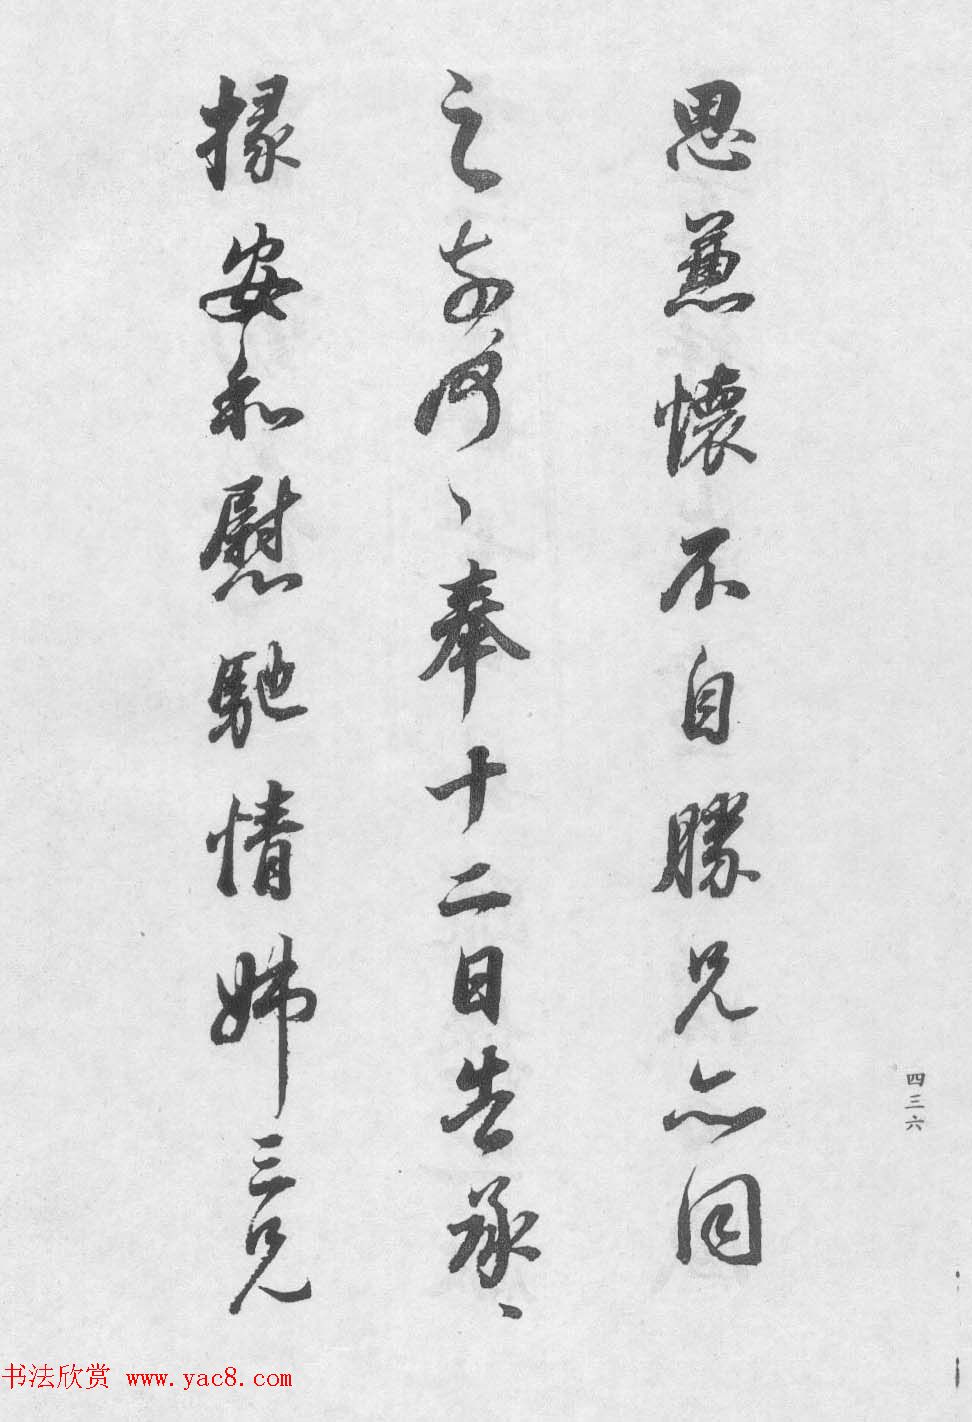 思兼懷不自勝兄亦同
之奈何〻奉十二日告承〻
掾安和慰馳情姊三兄
四三六
书法欣赏 www.yac8.com